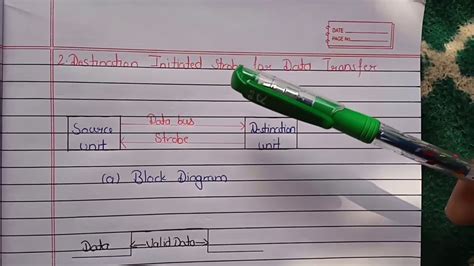 DATE
PAGE No.
2. Destination Initiated Strobe for Data Transfer
Source unit
Data bus
Strobe
Destination unit
(a) Block Diagram
Data
Valid Data